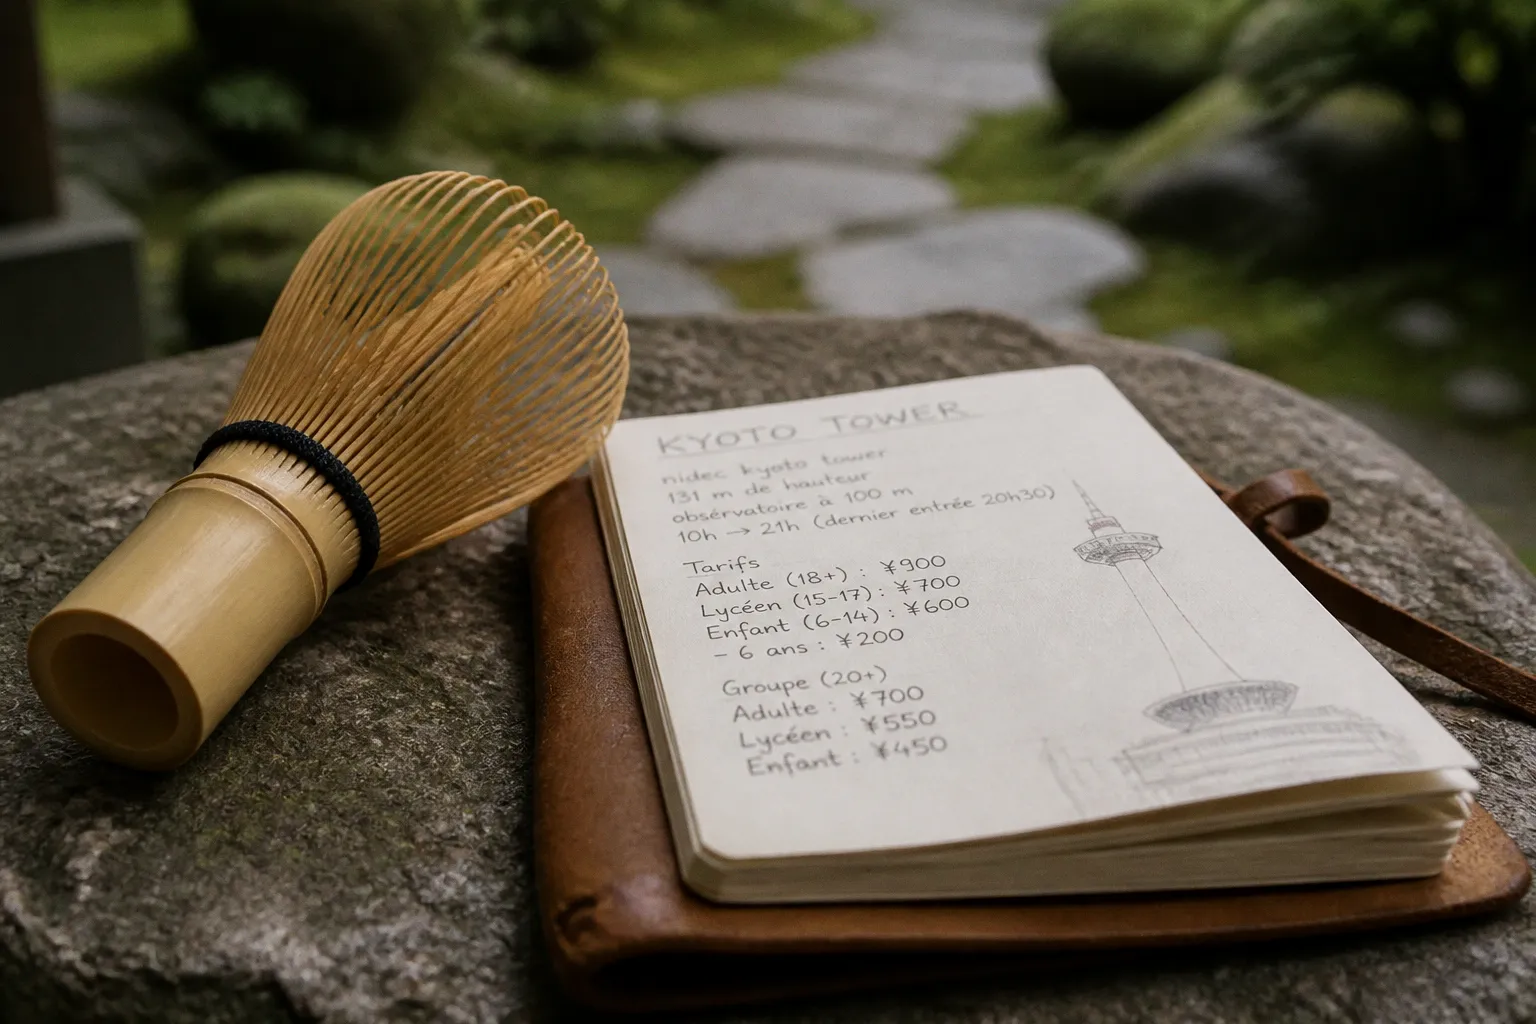 KYOTO TOWER
nidec kyoto tower
131 m de hauteur
obsérvatoire à 100 m
10h → 21h (dernier entrée 20h30)
Tarifs
Adulte (18+) : ¥900
Lycéen (15-17) : ¥700
Enfant (6-14) : ¥600
- 6 ans : ¥200
Groupe (20+)
Adulte : ¥700
Lycéen : ¥550
Enfant : ¥450